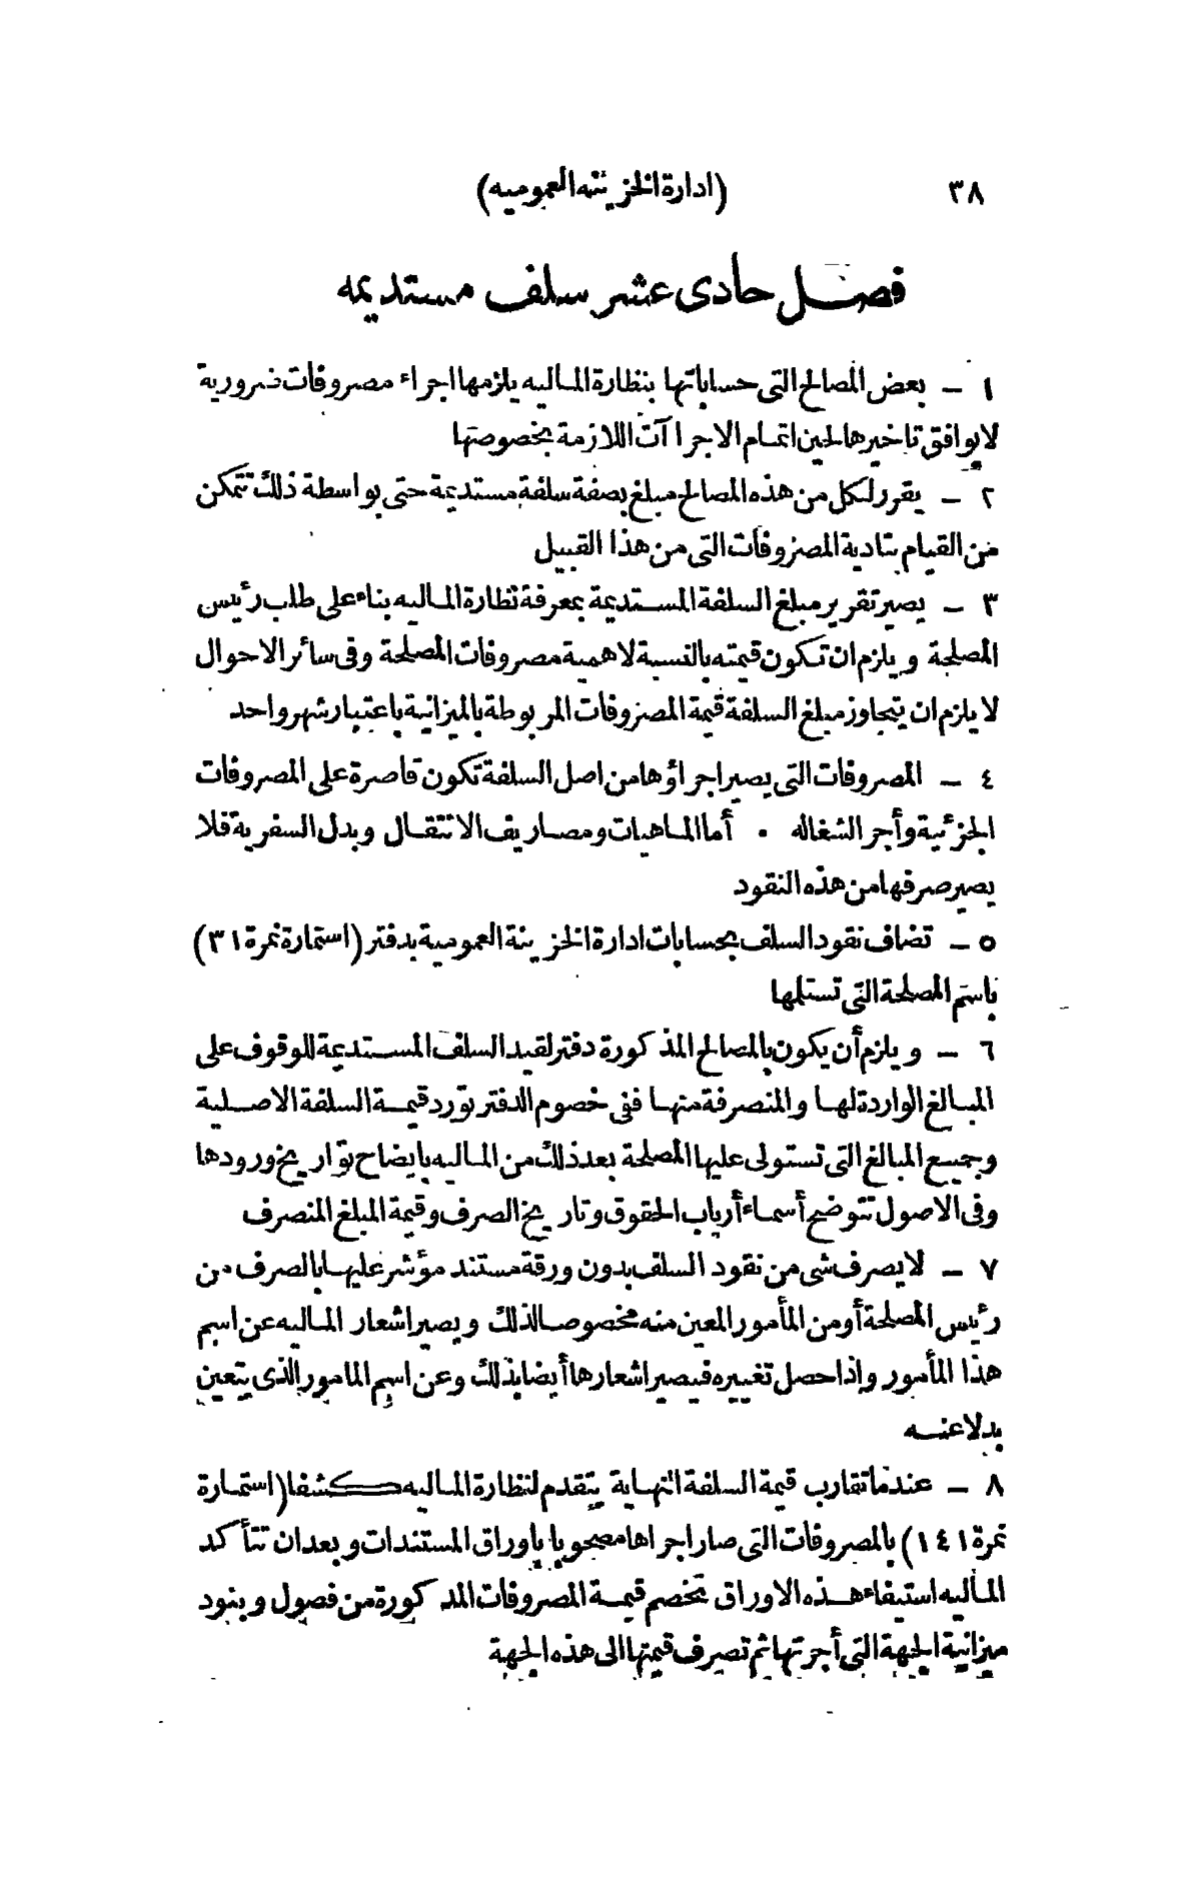 ٣٨
(ادارة الخزينه العموميه)
فصل حادى عشر سلف مستديمه
١ – بعض المصالح التى حساباتها بنظارة الماليه يلزمها اجراء مصروفات ضرورية
لا يوافق تاخيرها لحين اتمام الاجرا آت اللازمة بخصوصها
٢ – يقرر لكل من هذه المصالح مبلغ بصفة سلفة مستديمة حتى بواسطة ذلك تتمكن
من القيام بتادية المصروفات التى من هذا القبيل
٣ – يصير تقرير مبلغ السلفة المستديمة بمعرفة نظارة الماليه بناء على طلب رئيس
المصلحة ويلزم ان تكون قيمته بالنسبة لاهمية مصروفات المصلحة وفى سائر الاحوال
لا يلزم ان يتجاوز مبلغ السلفة قيمة المصروفات المربوطة بالميزانية باعتبار شهر واحد
٤ – المصروفات التى يصير اجراؤها من اصل السلفة تكون قاصرة على المصروفات
الجزئية وأجر الشغاله . أما الماهيات ومصاريف الانتقال وبدل السفرية فلا
يصير صرفها من هذه النقود
٥ – تضاف نقود السلف بحسابات ادارة الخزينة العمومية بدفتر (استمارة نمرة ٣١)
باسم المصلحة التى تستلمها
٦ – ويلزم أن يكون بالمصالح المذكورة دفتر لقيد السلف المستديمة للوقوف على
المبالغ الواردة لها والمنصرفة منها ففى خصوم الدفتر تورد قيمة السلفة الاصلية
وجميع المبالغ التى تستولى عليها المصلحة بعد ذلك من الماليه بايضاح تواريخ ورودها
وفى الاصول تتوضح أسماء أرباب الحقوق وتاريخ الصرف وقيمة المبلغ المنصرف
٧ – لا يصرف شى من نقود السلف بدون ورقة مستند مؤشر عليها بالصرف من
رئيس المصلحة أو من المأمور المعين منه مخصوصا لذلك ويصير اشعار الماليه عن اسم
هذا المأمور واذا حصل تغييره فيصير اشعارها أيضا بذلك وعن اسم المامور الذى يتعين
بدلا عنه
٨ – عندما تقارب قيمة السلفة انتهاية يتقدم لنظارة الماليه كشفا (استمارة
نمرة ١٤١) بالمصروفات التى صار اجراها مصحوبا باوراق المستندات وبعد ان تتأكد
الماليه استيفاء هذه الاوراق تخصم قيمة المصروفات المذكورة من فصول وبنود
ميزانية الجهة التى أجرتها ثم تصرف قيمتها الى هذه الجهة